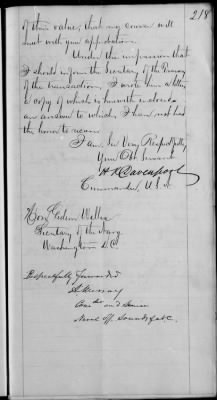 218
of their value; that my course will
meet with your approbation.
Under the impression that
I should inform the Secretary of the Treasury
of the transaction, I wrote him a letter,
a copy of which is herewith enclosed—
an answer to which, I have not had
the honor to receive.
I am, Sir Very Respectfully,
Your Obt Servant
H K Davenport
Commander, U.S.N.
Hon. Gideon Welles
Secretary of the Navy
Washington D.C.
Respectfully forwarded
A. Murray
Com'dr and Senior
Naval Off. Sounds of N.C.